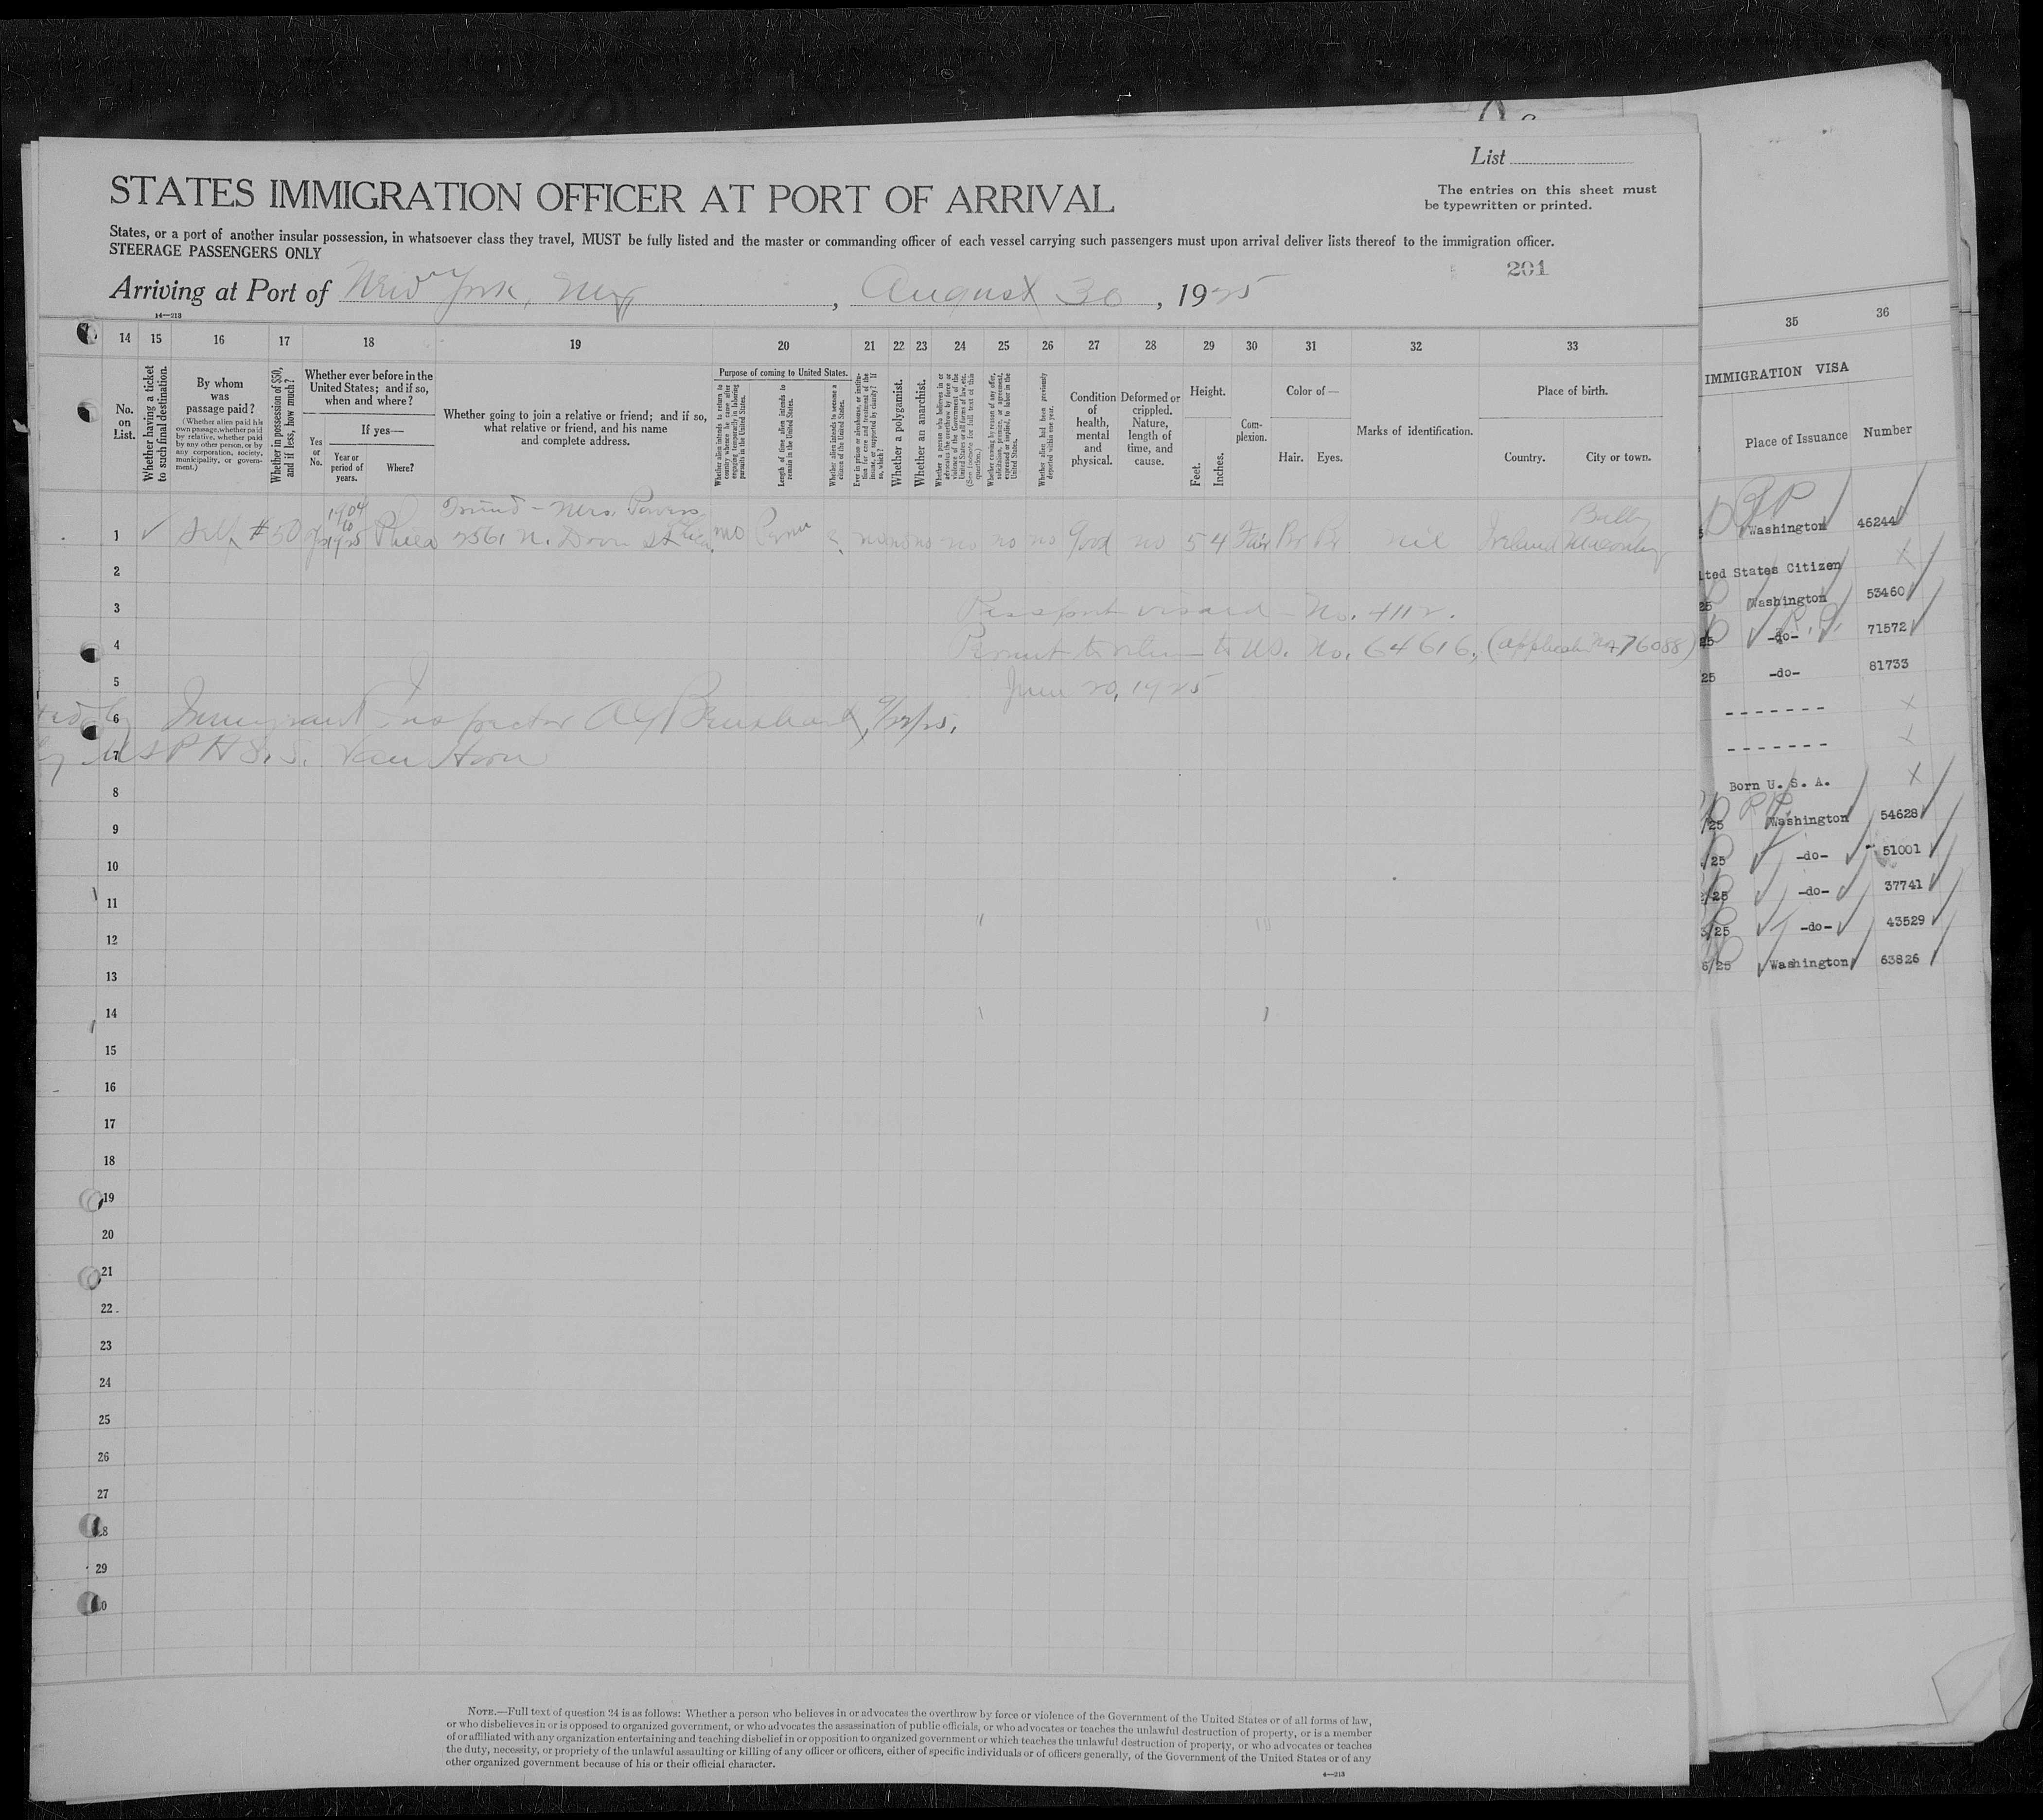 List
STATES IMMIGRATION OFFICER AT PORT OF ARRIVAL
The entries on this sheet must
be typewritten or printed.
States, or a port of another insular possession, in whatsoever class they travel, MUST be fully listed and the master or commanding officer of each vessel carrying such passengers must upon arrival deliver lists thereof to the immigration officer.
STEERAGE PASSENGERS ONLY
201
Arriving at Port of New York, , August 30, 1925
14—213
14 15 16 17 18 19 20 21 22 23 24 25 26 27 28 29 30 31 32 33
No. on List.
Whether having a ticket to such final destination.
By whom was passage paid?
(Whether alien paid his own passage, whether paid by relative, whether paid by any other person, or by any corporation, society, municipality, or government.)
Whether in possession of $50, and if less, how much?
Whether ever before in the United States; and if so, when and where?
Yes or No.
If yes—
Year or period of years.
Where?
Whether going to join a relative or friend; and if so, what relative or friend, and his name and complete address.
Purpose of coming to United States.
Whether alien intends to return to country whence he came after engaging temporarily in laboring pursuits in the United States.
Length of time alien intends to remain in the United States.
Whether alien intends to become a citizen of the United States.
Ever in prison or almshouse, or institution for care and treatment of the insane, or supported by charity? If so, which?
Whether a polygamist.
Whether an anarchist.
Whether a person who believes in or advocates the overthrow by force or violence of the Government of the United States or all forms of law, etc. (See footnote for full text of this question.)
Whether coming by reason of any offer, solicitation, promise, or agreement, expressed or implied, to labor in the United States.
Whether alien had been previously deported within one year.
Condition of health, mental and physical.
Deformed or crippled. Nature, length of time, and cause.
Height.
Feet. Inches.
Complexion.
Color of—
Hair. Eyes.
Marks of identification.
Place of birth.
Country. City or town.
1904
to
Friend - Mrs.
1 ✓ Self $50 yes 1925 Phila 2561 N. St no no no no no no no Good no 5 4 Fair Br Br nil Ireland
2
3 Passport visaed - No. 4112.
4 Permit to return to US. No. 64616, (application No 76088)
5 June 20, 1925
6 Immigrant Inspector
7 by USPHS. S. Van Horn
8
9
10
11
12
13
14
15
16
17
18
19
20
21
22
23
24
25
26
27
28
29
30
NOTE.—Full text of question 24 is as follows: Whether a person who believes in or advocates the overthrow by force or violence of the Government of the United States or of all forms of law,
or who disbelieves in or is opposed to organized government, or who advocates the assassination of public officials, or who advocates or teaches the unlawful destruction of property, or is a member
of or affiliated with any organization entertaining and teaching disbelief in or opposition to organized government or which teaches the unlawful destruction of property, or who advocates or teaches
the duty, necessity, or propriety of the unlawful assaulting or killing of any officer or officers, either of specific individuals or of officers generally, of the Government of the United States or of any
other organized government because of his or their official character.
35 36
IMMIGRATION VISA
Place of Issuance Number
Washington 46244
ited States Citizen
25 Washington 53460
25 -do- 71572
25 -do- 81733
-------
-------
Born U. S. A.
/25 Washington 54628
/25 -do- 51001
/25 -do- 37741
/25 -do- 43529
/25 Washington 63826